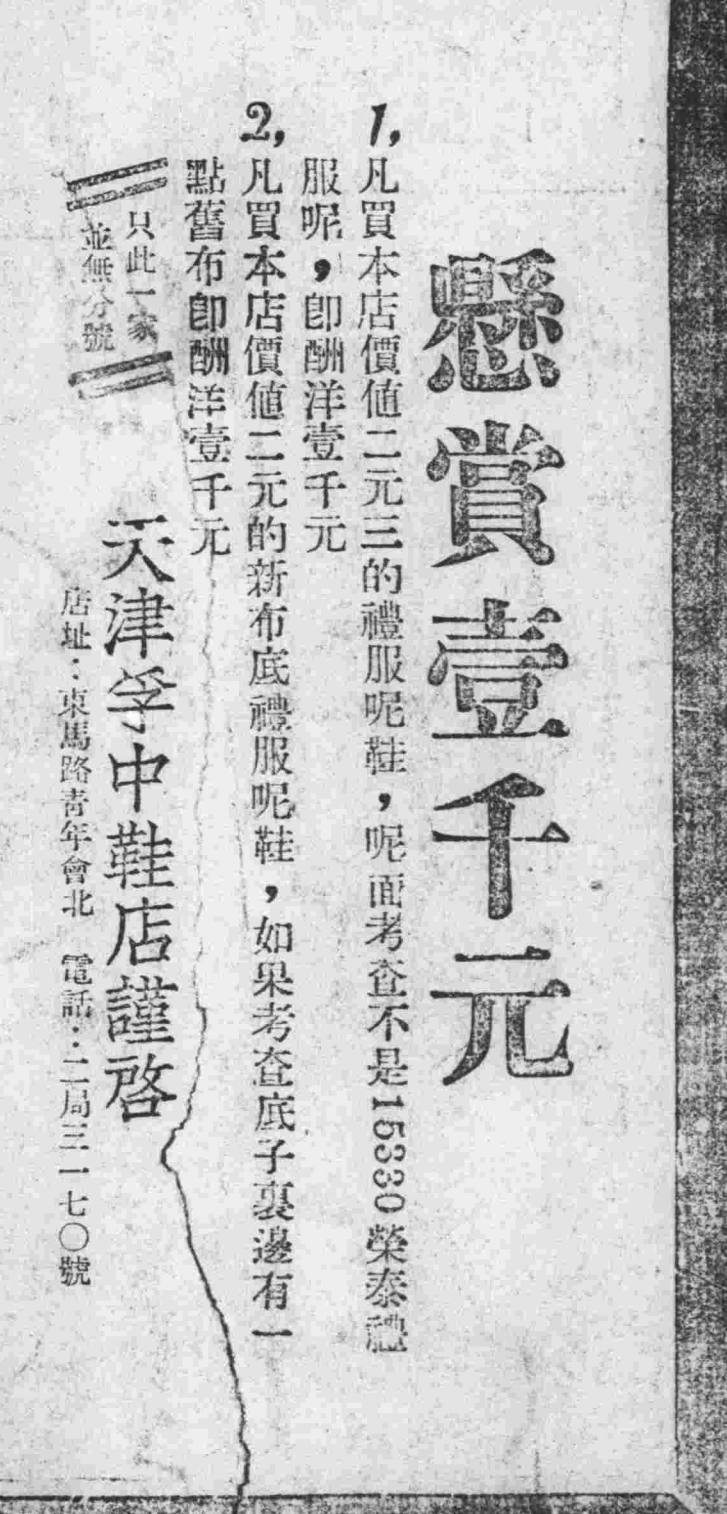 懸賞壹千元
1,凡買本店價值二元三的禮服呢鞋,呢面考查不是15330榮泰禮
服呢,卽酬洋壹千元
2,凡買本店價值二元的新布底禮服呢鞋,如果考查底子裏邊有一
點舊布卽酬洋壹千元
只此一家
並無分號
天津孚中鞋店謹啓
店址:東馬路靑年會北 電話:二局三一七〇號